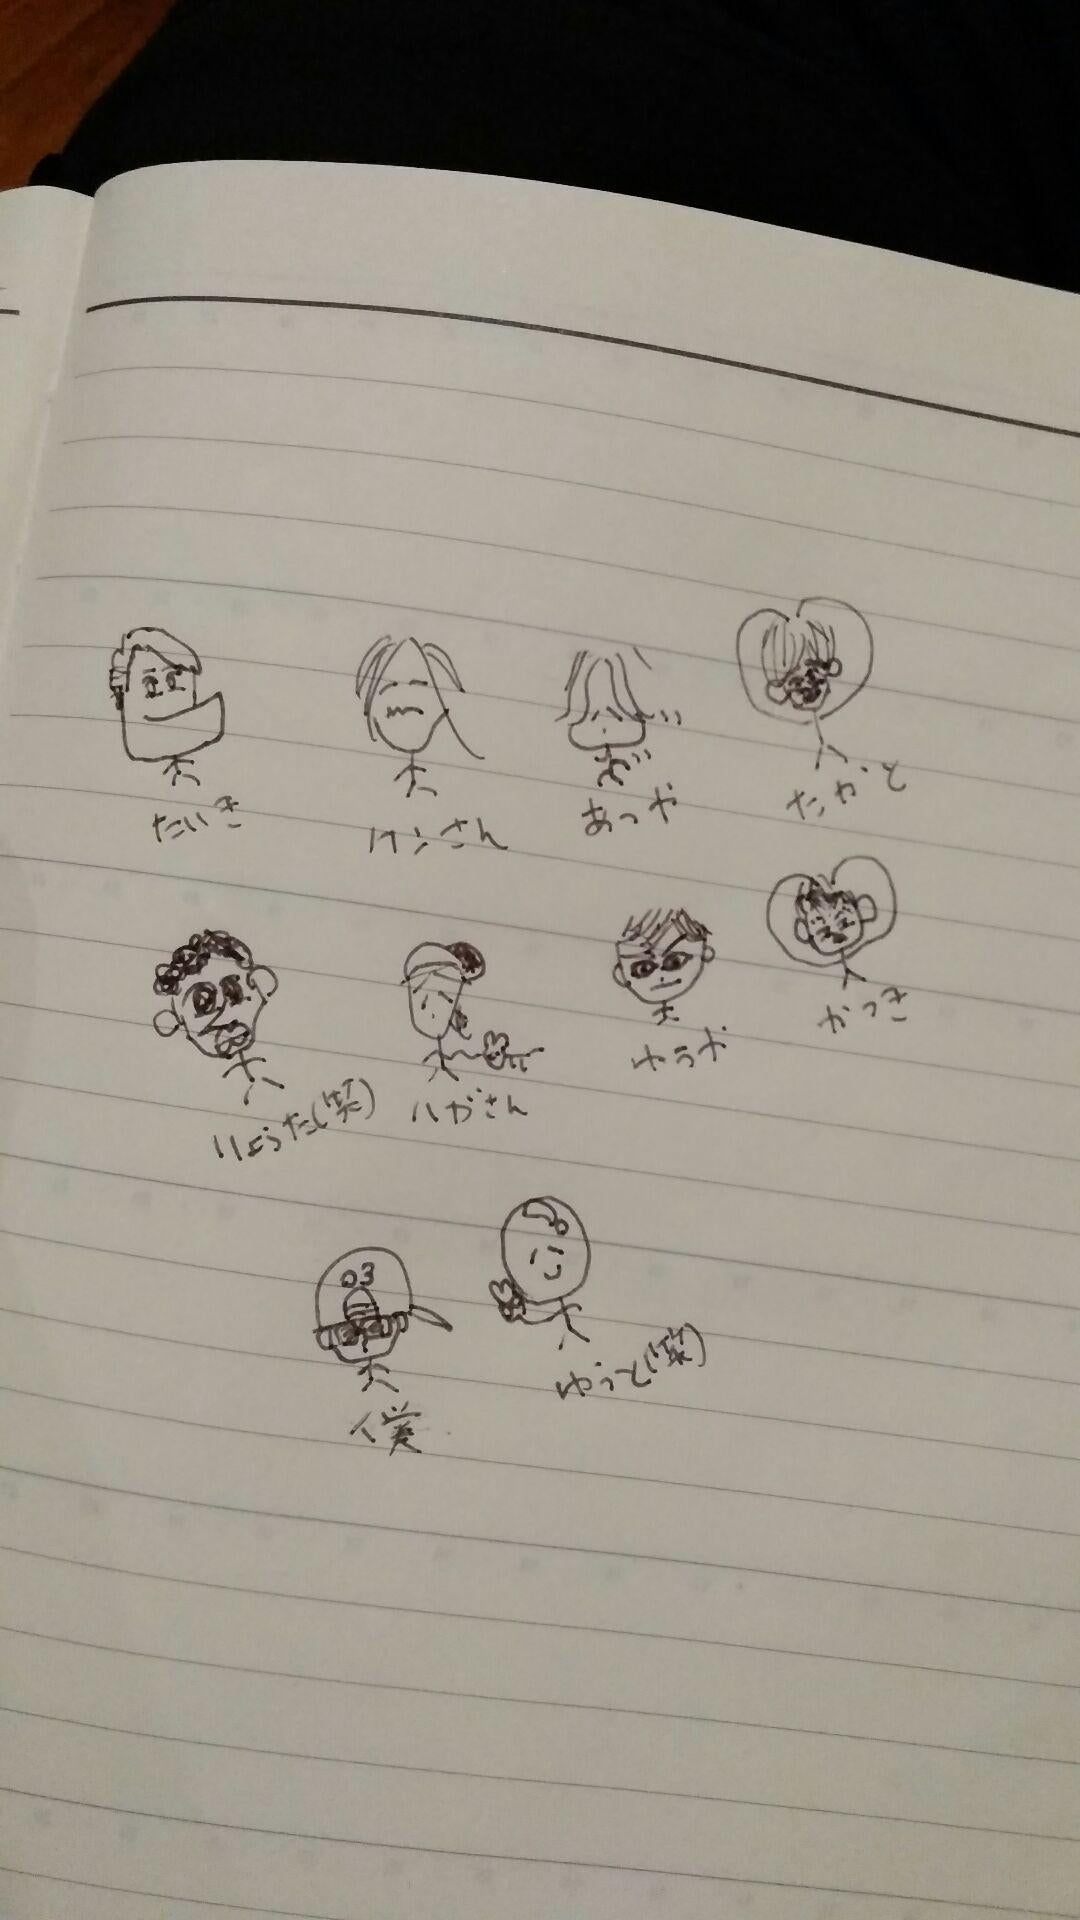 たいき
ケンさん
あつや
たかと
りょうた(笑)
ハガさん
ゆうが
かつき
03
僕
ゆうと(笑)